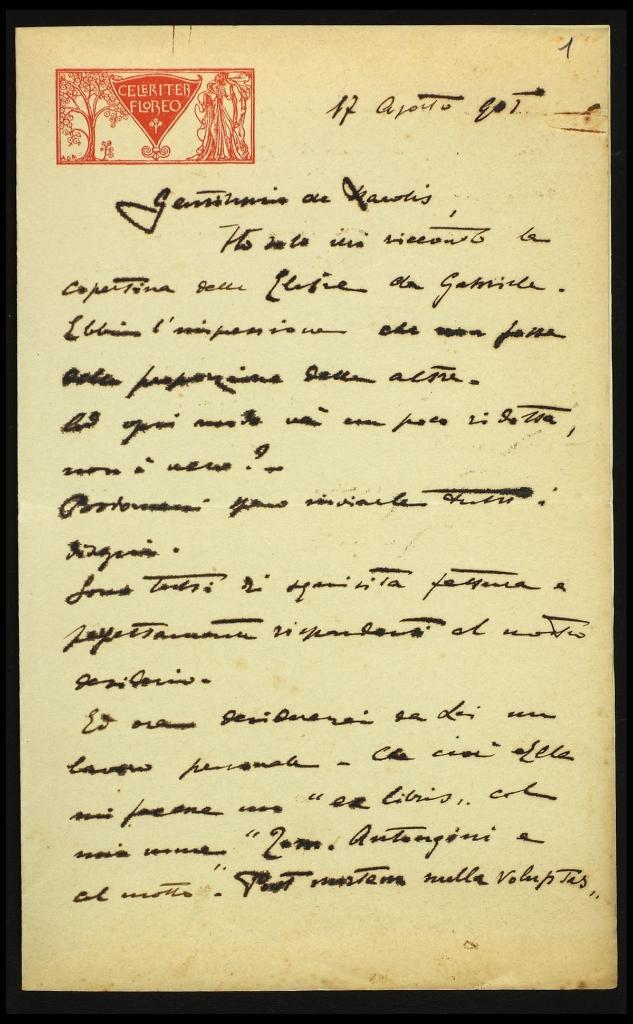 1
CELERITER
FLOREO
17 Agosto 907
Gentilissimo de Karolis,
Ho solo ieri riceduto la
copertina delle Elettre da Gabriele.
Ebbi l'impressione che non fosse
della proporzione delle altre.
Ad ogni modo và un poco ridotta,
non è vero?
spero inviarle tutti i
disegni.
Sono tutti di squisita fattura e
perfettamente rispondenti al nostro
desiderio.
Ed ora desidererei da Lei un
lavoro personale - Che cioè Ella
mi facesse un "ex libris" col
mio nome "Tom. Antongini e
al motto". Post mortem nulla voluptas"